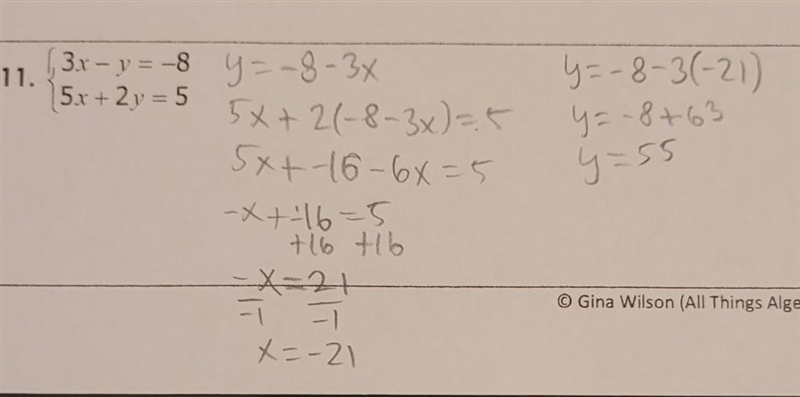 11. 3x – y = –8
5x + 2y = 5
y = -8 - 3x
5x + 2(-8 - 3x) = 5
5x + -16 - 6x = 5
-x + -16 = 5
+16 +16
-x = 21
-1 -1
x = -21
y = -8 - 3(-21)
y = -8 + 63
y = 55
© Gina Wilson (All Things Alge